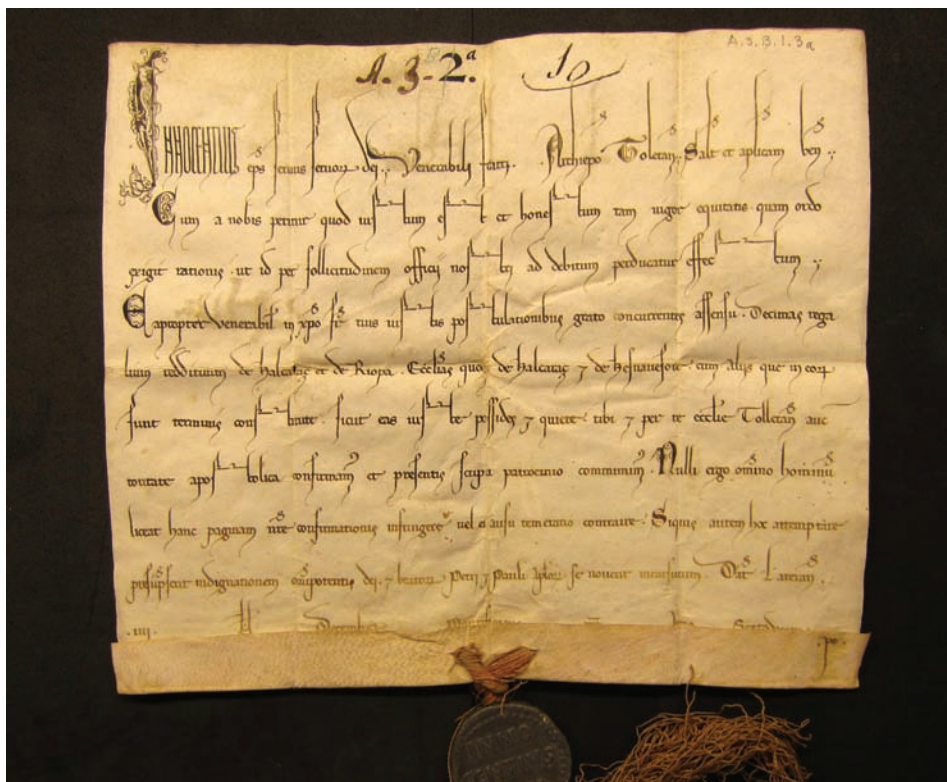 A.3.B.1.3a
A. 3. 2.ª 10
INNOCENTIUS eps seruus seruor di. Venerabili fratri . . Archiepo Toletan. Salt et aplicam ben.
Cum a nobis petitur quod iustum est et honestum tam uigor equitatis quam ordo
exigit rationis ut id per sollicitudinem officii nostri ad debitum perducatur effectum.
Eapropter venerabil in xpo fr tuis iustis postulationibus grato concurrentes assensu. Decimas rega
lium reddituum de halcaraz et de Riopa. Ecclias quoq de halcaraz 7 de
sunt terminis constitute sicut eas iuste possides 7 quiete tibi 7 per te ecclie Tolletan auc
toritate apostolica confirmam et presentis scripti patrocinio communim. Nulli ergo omino hominu
liceat hanc paginam nre confirmationis infringere uel ei ausu temerario contraire. Siquis autem hoc attemptare
presupserit indignationem omipotentis di 7 beator Petri 7 Pauli aplor se nouerit incursurum. Dat Lateran
.iiii.